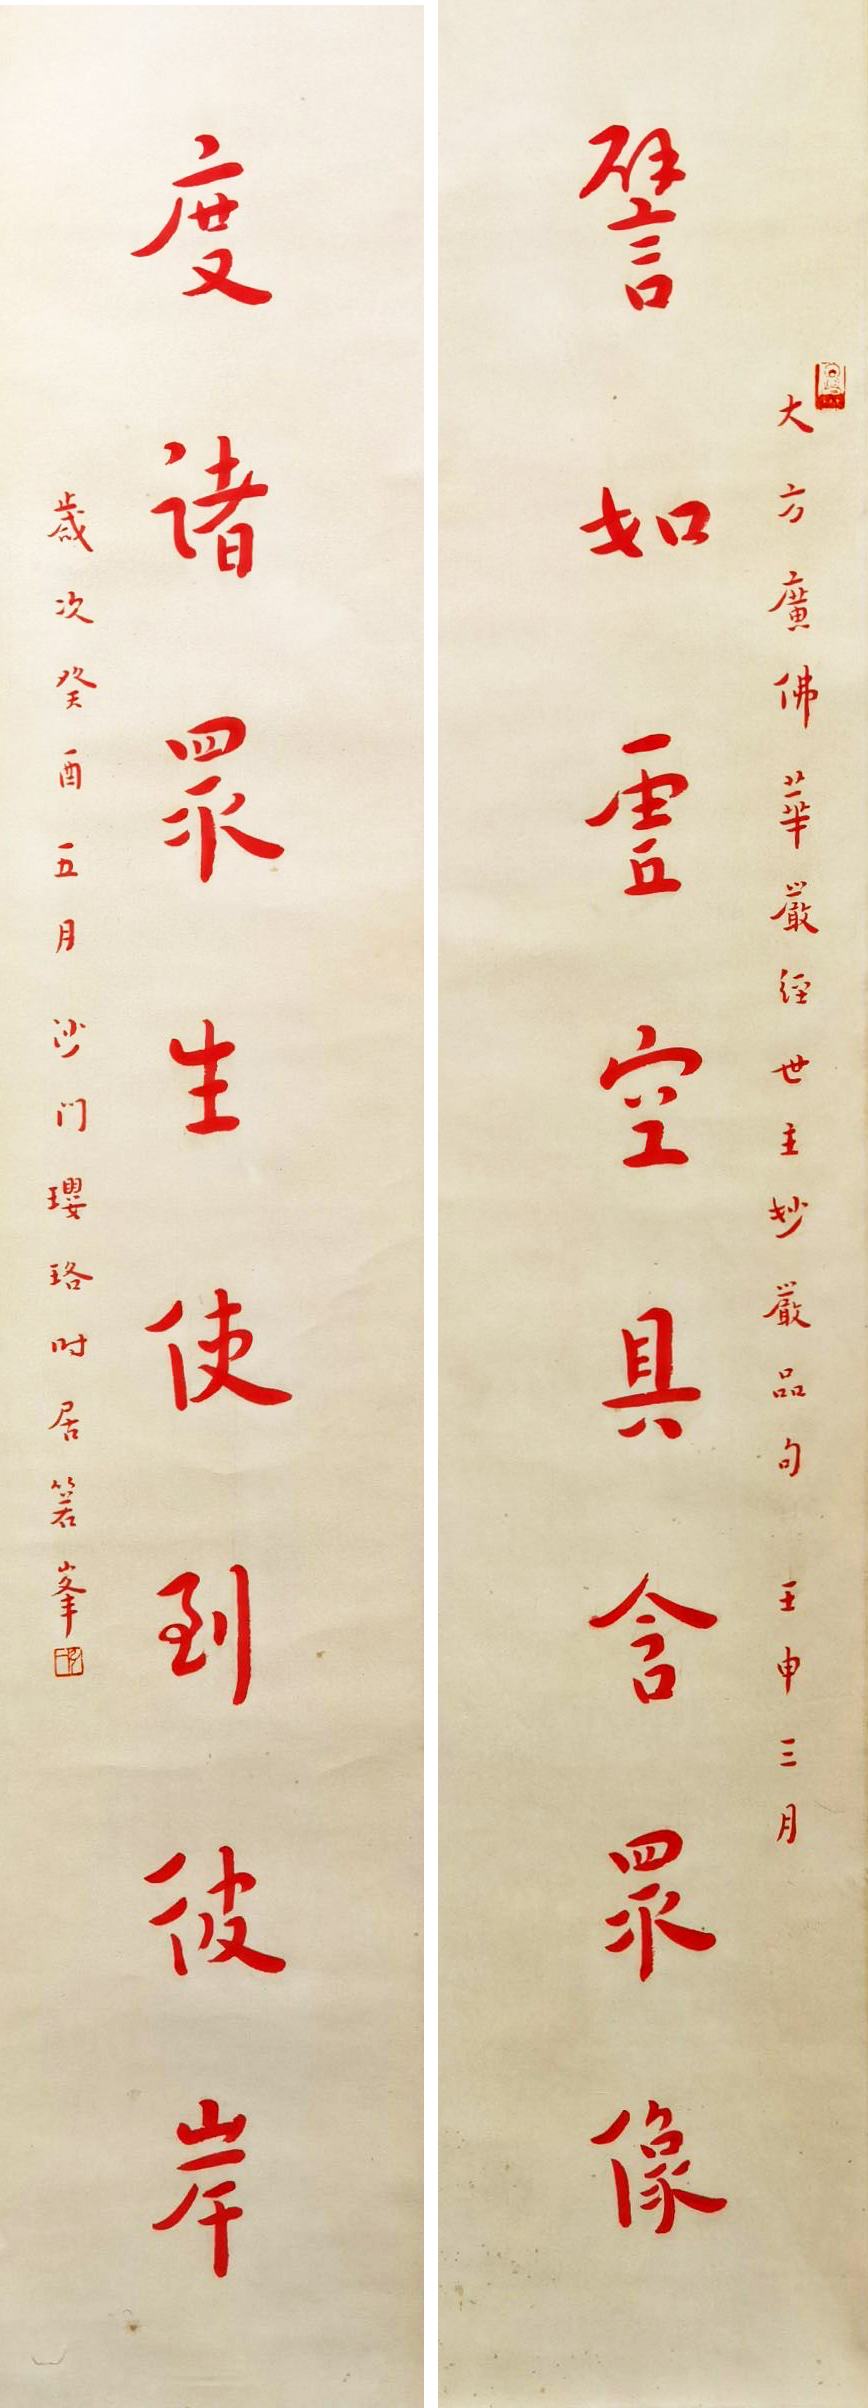 大方廣佛華嚴經世主妙嚴品句 壬申三月
譬如虛空具含眾像
度諸眾生使到彼岸
歲次癸酉五月 沙門瓔珞時居箬峯